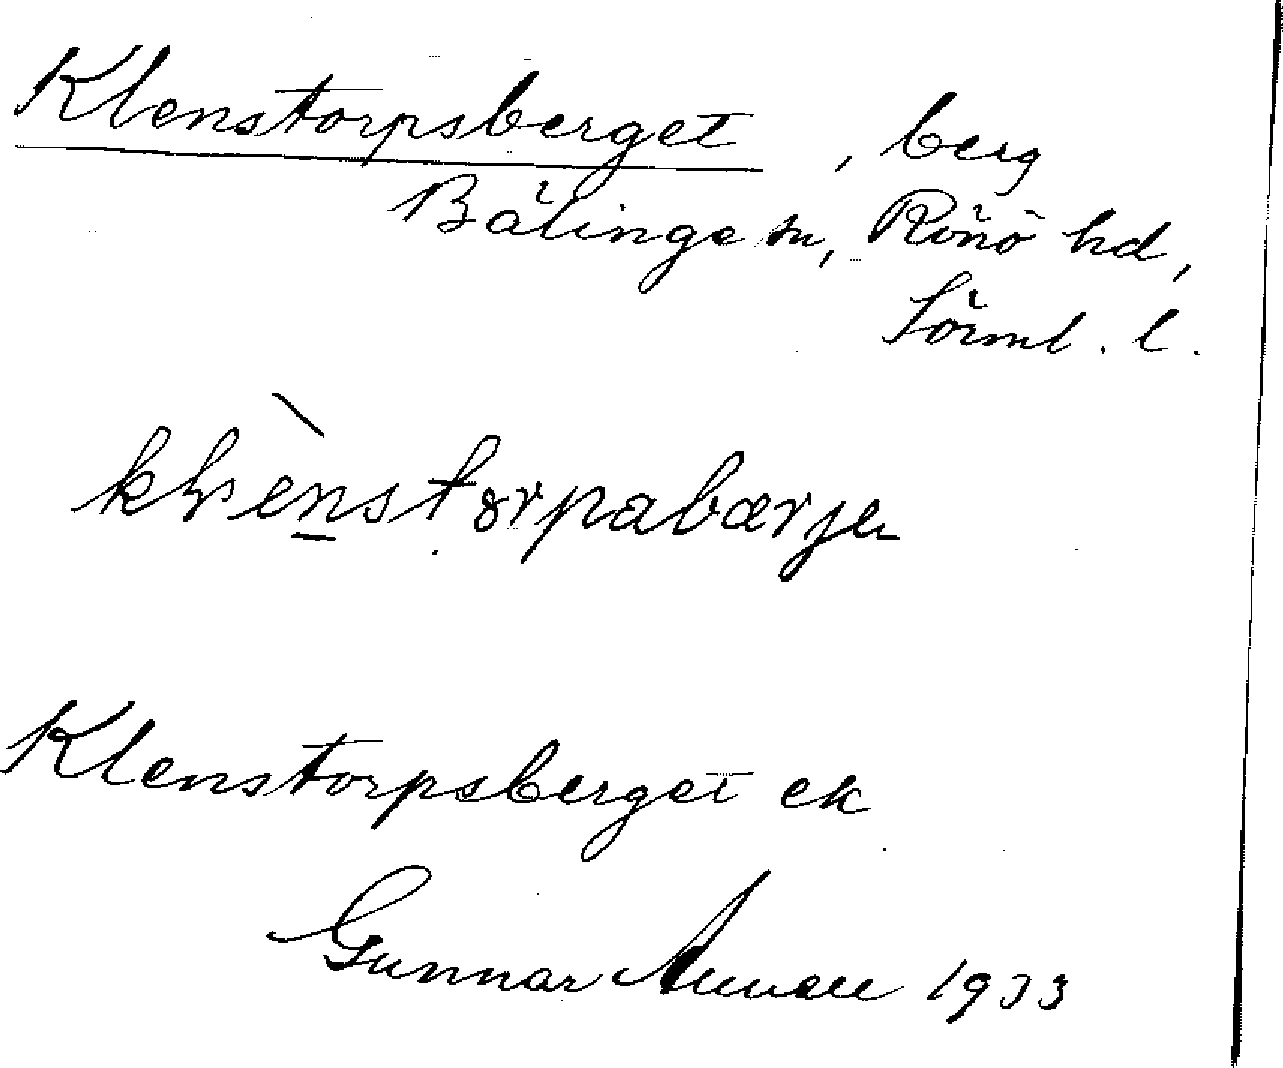 Klenstorpsberget, berg
Bälinge sn, Rönö hd,
Sörml. l.
Klenstorpsberget ek
Gunnar 1933